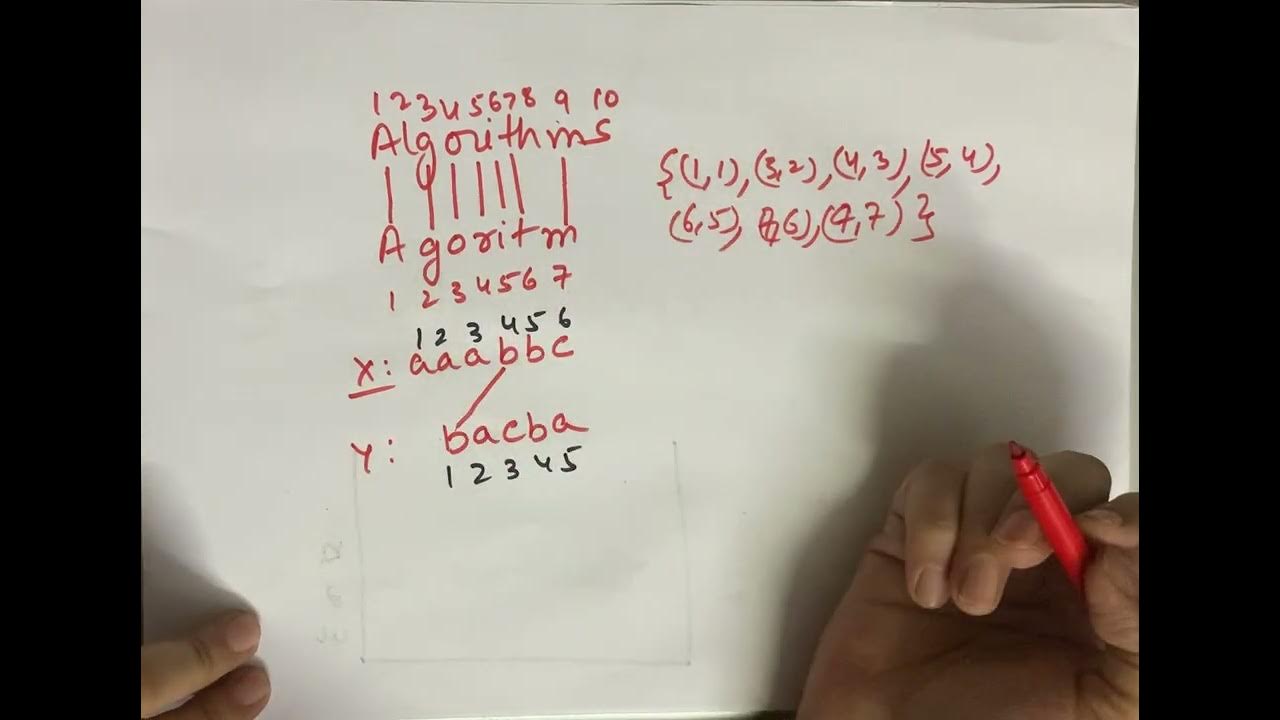 1 2 3 4 5 6 7 8 9 10
Algorithms
{(1,1),(3,2),(4,3),(5,4),
(6,5), (7,6),(9,7)}
Agoritm
1 2 3 4 5 6 7
1 2 3 4 5 6
X: aaabbc
Y: bacba
1 2 3 4 5